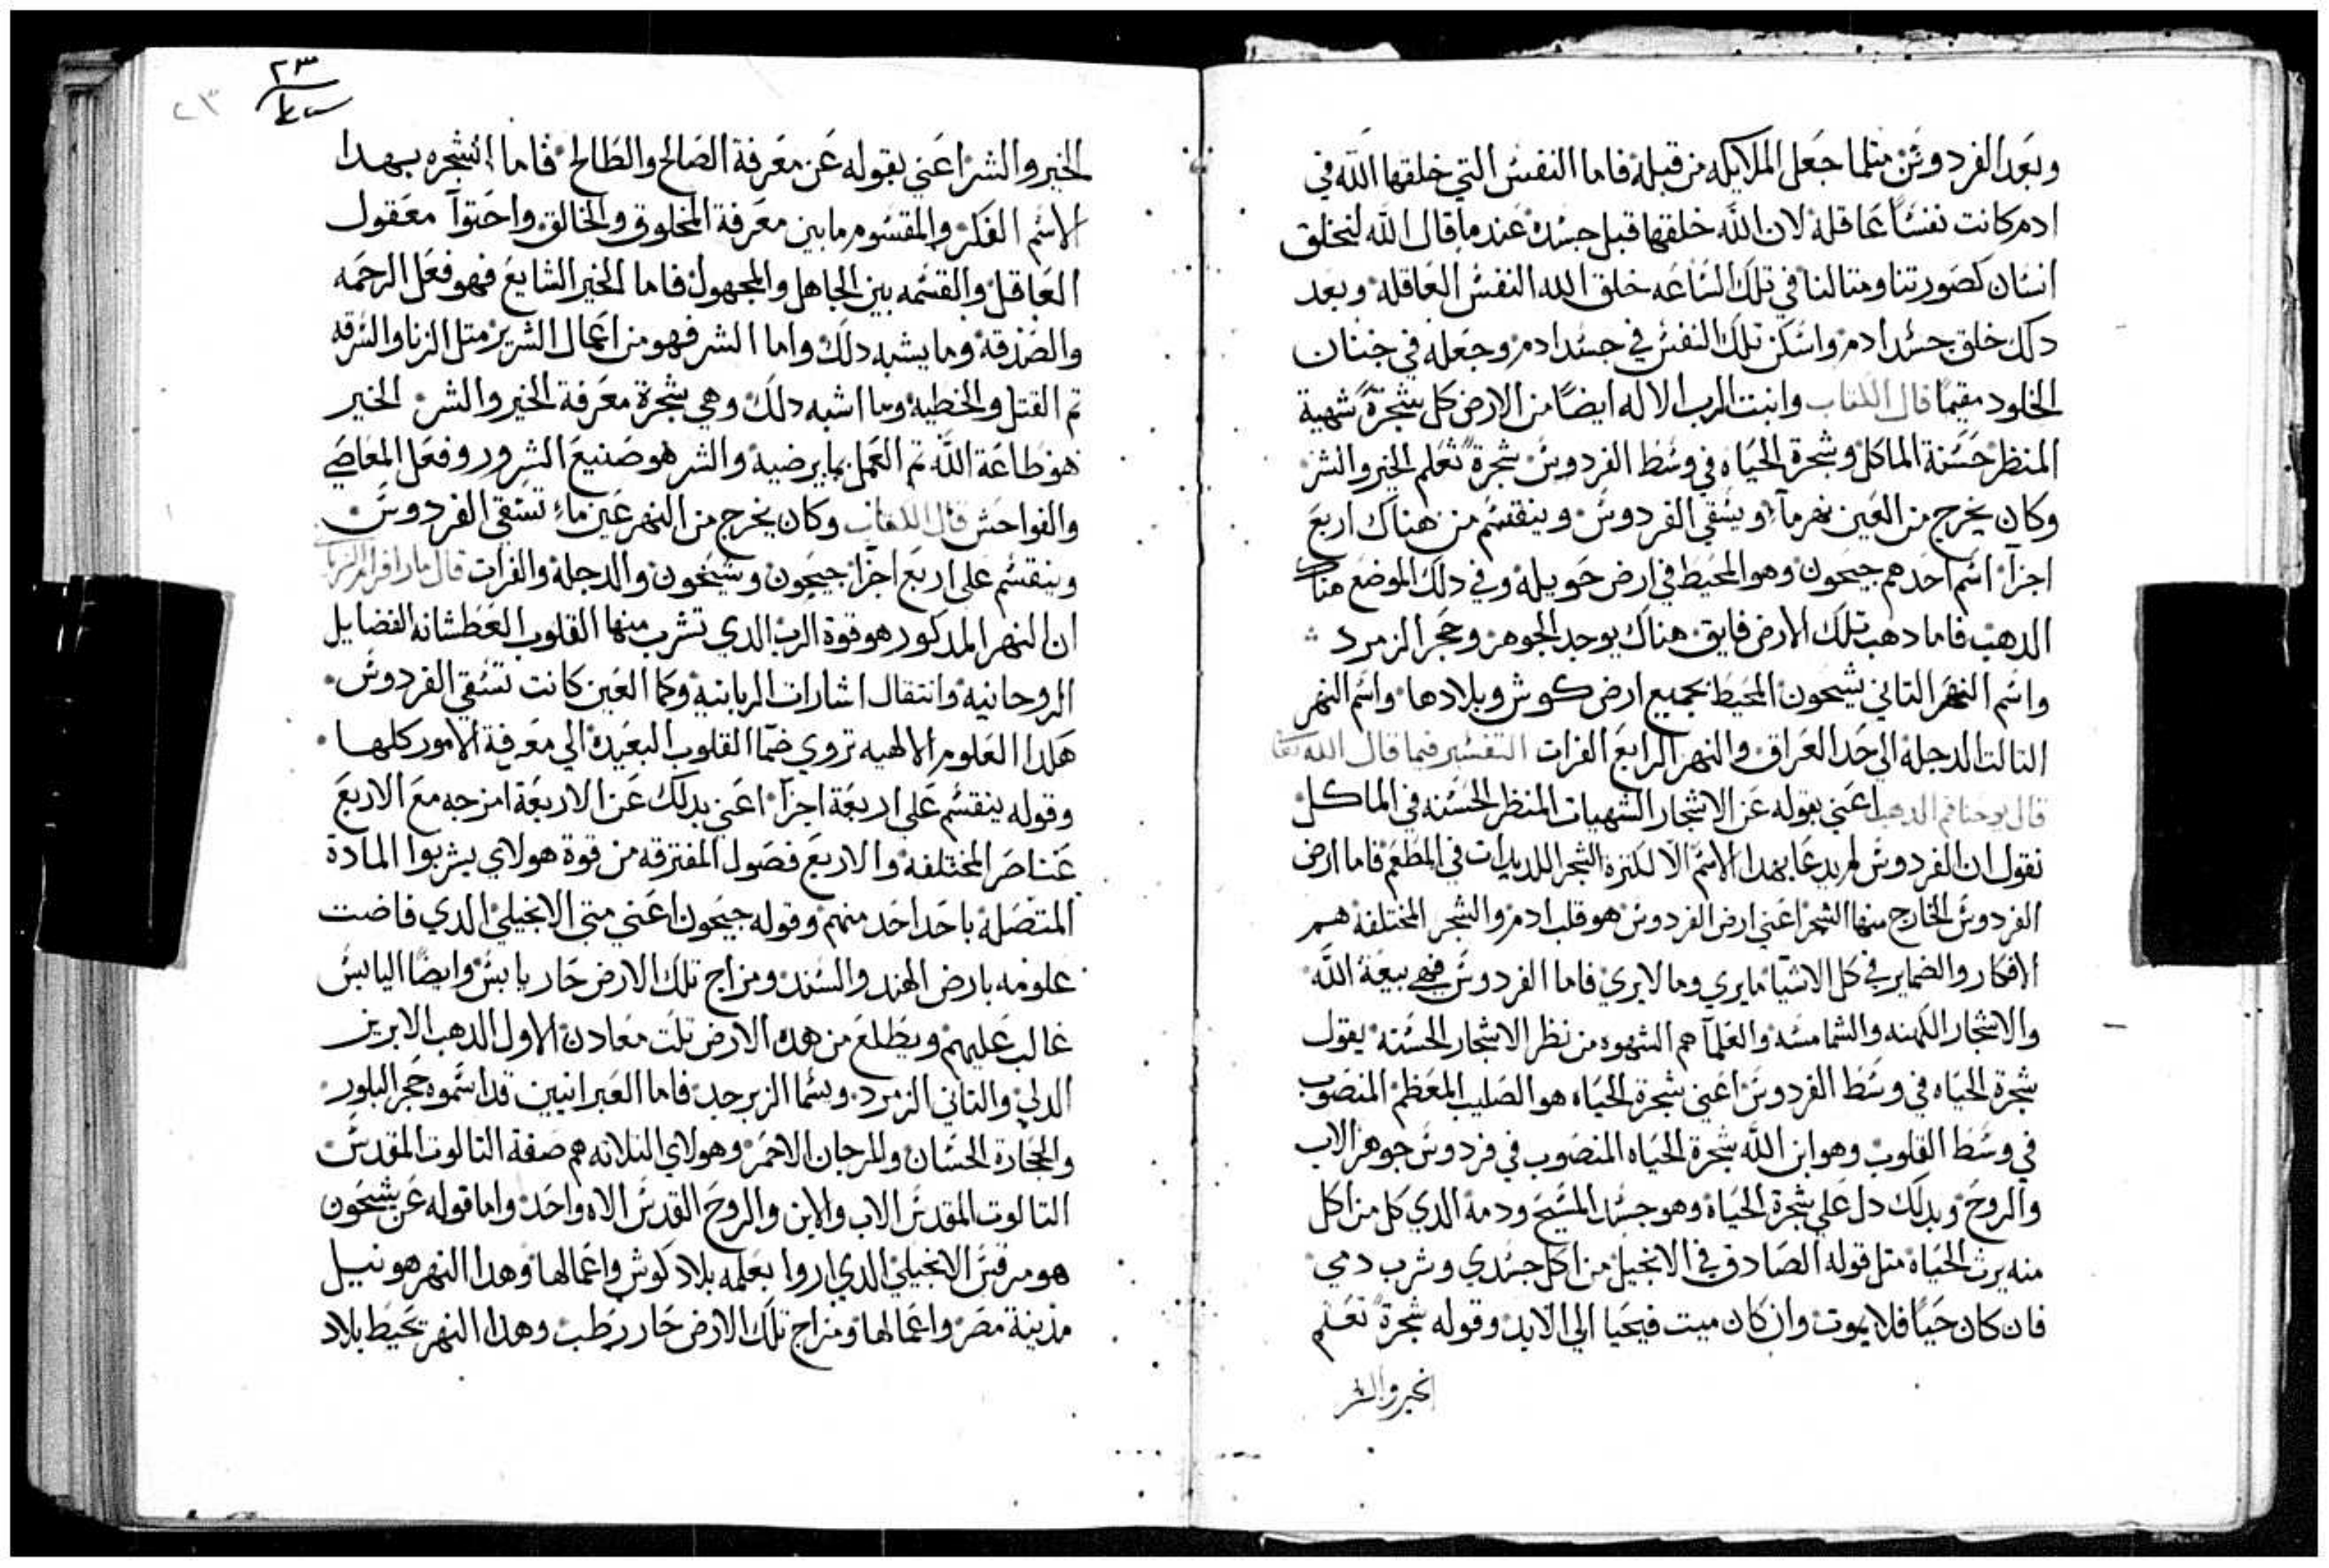 وبعد الفردوس متلما جعل الملايكه من قبله فاما النفس التي خلقها الله في
ادم كانت نفسًا عاقله لان الله خلقها قبل جسده عندما قال الله لنخلق
انسان كصورتنا ومتالنا في تلك الساعه خلق الله النفس العاقله وبعد
دلك خلق جسد ادم واسكن تلك النفس في جسد ادم وجعله في جنان
الخلود مقيمًا قال الكتاب وانبت الرب الاله ايضًا من الارض كل شجرة شهية
المنظر حسنة الماكل وشجرة الحياه في وسط الفردوس شجرة تعلم الخير والشر
وكان يخرج من العين نهر مآء ويسقي الفردوس وينقسم من هناك اربع
اجزآ اسم احدهم جيحون وهو المحيط في ارض حويله وفي دلك الموضع هناك
الدهب فاما دهب تلك الارض فايق هناك يوجد الجوهر وحجر الزمرد
واسم النهر التاني شيحون المحيط بجميع ارض كوش وبلادها واسم النهر
التالت الدجلة الي حد العراق والنهر الرابع الفرات التفسير فيما قال الله تعا
قال يوحنا فم الدهب اعني بقوله عن الاشجار الشهيات المنظر الحسنه في الماكل
نقول ان الفردوس لم يدعا بهدا الاسم الا لكترة الشجر اللديدات في المطعم فاما ارض
الفردوس الخارج منها الشجر اعني ارض الفردوس هو قلب ادم والشجر المختلفة هم
الافكار والضماير في كل الاشيا ما يري وما لا يري فاما الفردوس فهي بيعة الله
والاشجار الكهنه والشمامسه والعلمآ هم الشهوه من نظر الاشجار الحسنه يقول
شجرة الحياه في وسط الفردوس اعني شجرة الحياه هو الصليب المعظم المنصوب
في وسط القلوب وهو ابن الله شجرة الحياه المنصوب في فردوس جوهر الاب
والروح وبدلك دل علي شجرة الحياه وهو جسد المسيح ودمه الدي كل من اكل
منه يرت الحياه متل قوله الصادق في الانجيل من اكل جسدي وشرب دمي
فان كان حيًا فلا يموت وان كان ميت فيحيا الي الابد وقوله شجرة تعلم
الخير والشر
٢٣
٢٣
الخير والشر اعني بقوله عن معرفة الصالح والطالح فاما الشجره بهدا
الاسم الفكر والمقسوم ما بين معرفة المخلوق والخالق واحتوآ معقول
العاقل والقسمه بين الجاهل والمجهول فاما الخير الشايع فهو فعل الرحمه
والصدقة وما يشبه دلك واما الشر فهو من اعمال الشرير متل الزنا والسرقه
تم القتل والخطيه وما اشبه دلك وهي شجرة معرفة الخير والشر الخير
هو طاعة الله تم العمل بما يرضيه والشر هو صنيع الشرور وفعل المعاصي
والفواحش قال الكتاب وكان يخرج من النهر عين ماء تسقي الفردوس
وينقسم علي اربع اجزآ جيحون وشيحون والدجلة والفرات قال مار افرام السرياني
ان النهر المدكور هو قوة الرب الدي تشرب منها القلوب العطشانه الفضايل
الروحانيه وانتقال اشارات الربانيه وكما العين كانت تسقي الفردوس
هكدا العلوم الالهيه تروي ضمآ القلوب البعيدة الي معرفة الامور كلها
وقوله ينقسم علي اربعة اجزآ اعني بدلك عن الاربعة امزجه مع الاربع
عناصر المختلفه والاربع فصول المفترقه من قوة هولاي يشربوا المادة
المتصلة باحد احد منهم وقوله جيحون اعني متي الانجيلي الدي فاضت
علومه بارض الهند والسند ومزاج تلك الارض حار يابس وايضًا اليابس
غالب عليهم ويطلع من هده الارض تلت معادن الاول الدهب الابريز
الدكي والتاني الزمرد ويسما الزبرجد فاما العبرانيين قد اسموه حجر البلور
والحجارة الحسان والمرجان الاحمر وهولاي التلاته هم صفة التالوت المقدس
التالوت المقدس الاب والابن والروح القدس الاه واحد واما قوله عن شيحون
هو مرقس الانجيلي الدي اروا بعلمه بلاد كوش واعمالها وهدا النهر هو نيل
مدينة مصر واعمالها ومزاج تلك الارض حار رطب وهدا النهر يحيط بلاد